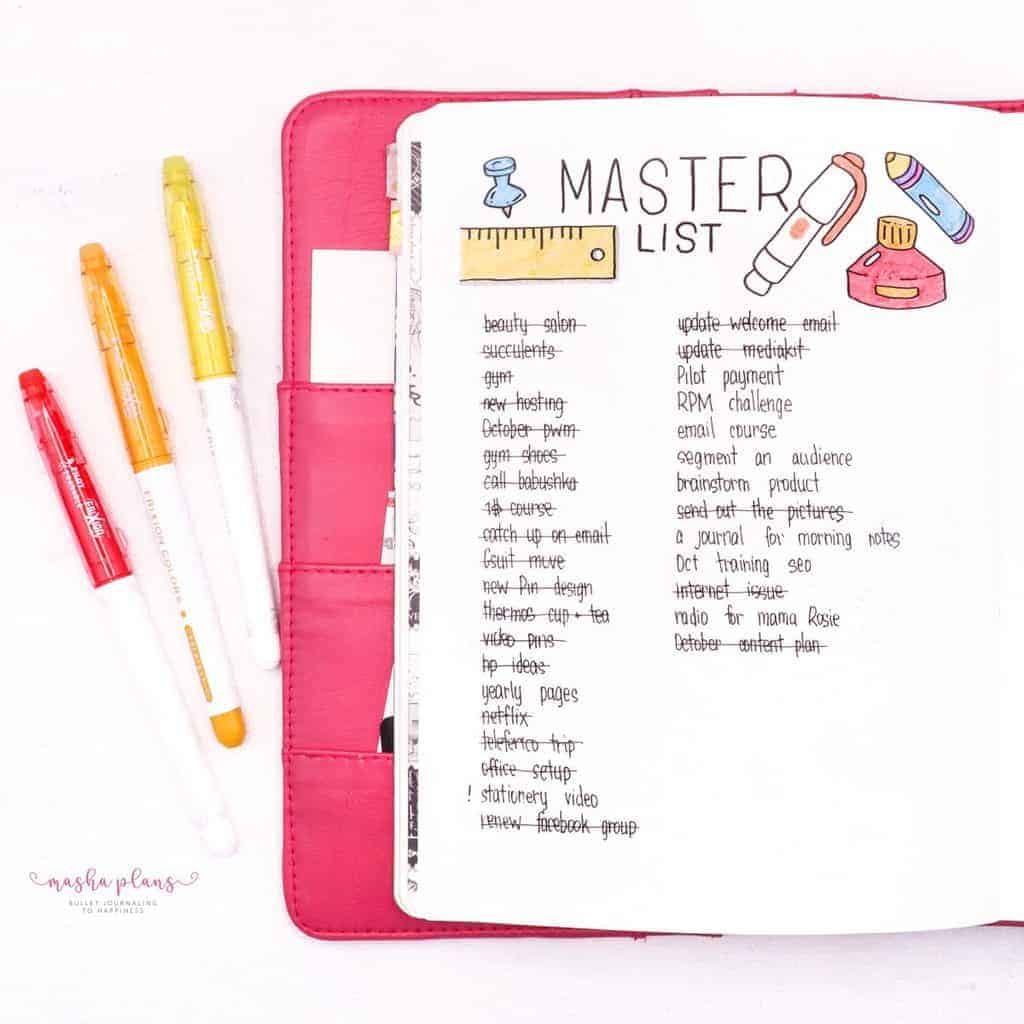 MASTER
LIST
beauty salon
succulents
gym
new hosting
October pwm
gym shoes
call babushka
1$ course
catch up on email
Gsuit move
new Pin design
thermos cup + tea
video pins
hp ideas
yearly pages
netflix
teleferico trip
office setup
! stationery video
renew facebook group
update welcome email
update mediakit
Pilot payment
RPM challenge
email course
segment an audience
brainstorm product
send out the pictures
a journal for morning notes
Oct training seo
Internet issue
radio for mama Rosie
October content plan
PILOT
FRIXION
FRIXION COLORS
masha plans
BULLET JOURNALING
TO HAPPINESS